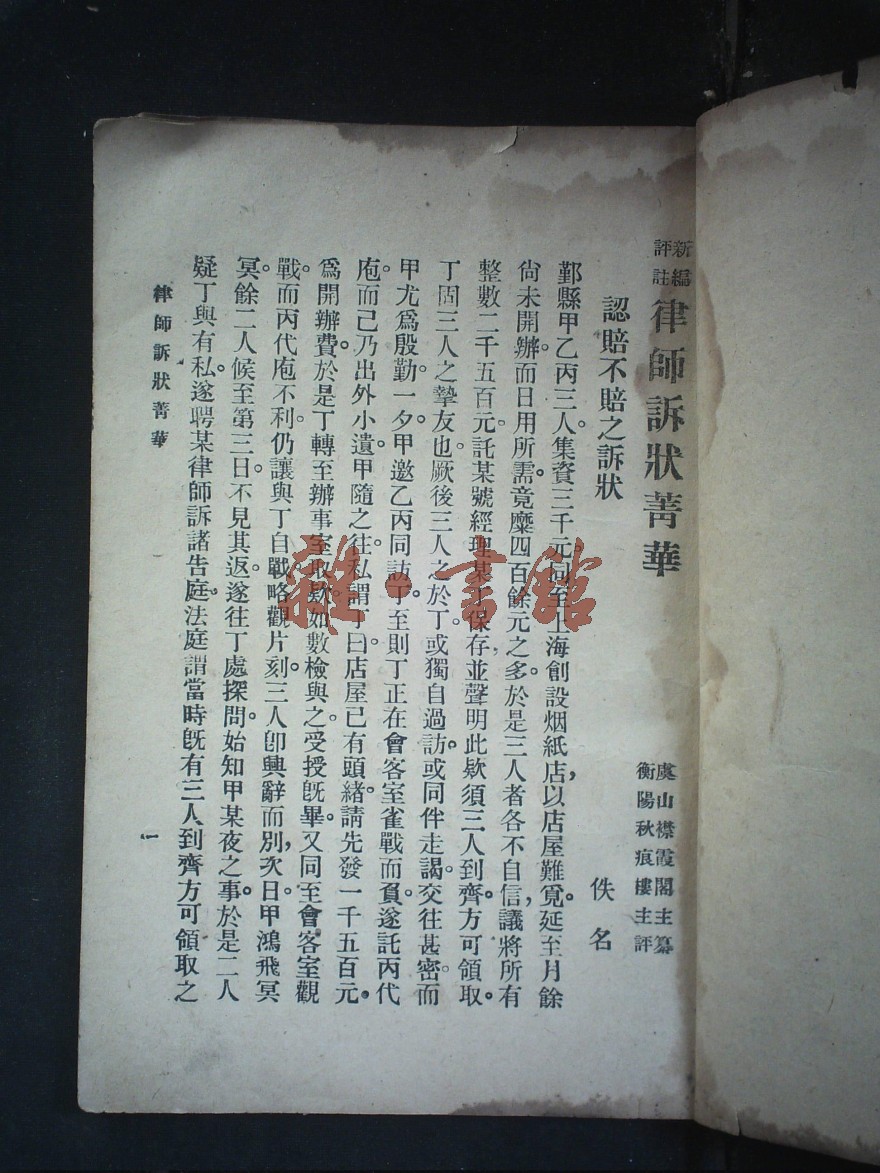 新編
評註
律師訴狀菁華
虞山襟霞閣主纂
衡陽秋痕樓主評
認賠不賠之訴狀
佚名
鄞縣甲乙丙三人。集資三千元。同至上海創設烟紙店，以店屋難覓。延至月餘
尙未開辦。而日用所需。竟糜四百餘元之多。於是三人者各不自信，議將所有
整數二千五百元。託某號經理某丁保存，並聲明此欵須三人到齊。方可領取。
丁固三人之摯友也。厥後三人之於丁。或獨自過訪。或同伴走謁。交往甚密。而
甲尤爲殷勤。一夕。甲邀乙丙同訪丁。至則丁正在會客室雀戰而負。遂託丙代
庖。而己乃出外小遺。甲隨之往。私謂丁曰。店屋已有頭緖。請先發一千五百元。
爲開辦費。於是丁轉至辦事室。取欵如數檢與之。受授旣畢。又同至會客室觀
戰。而丙代庖不利。仍讓與丁自戰。略觀片刻。三人卽興辭而別，次日。甲鴻飛冥
冥。餘二人候至第三日。不見其返。遂往丁處探問。始知甲某夜之事。於是二人
疑丁與有私。遂聘某律師訴諸吿庭。法庭謂當時旣有三人到齊方可領取之
律師訴狀菁華
一
雜·書館